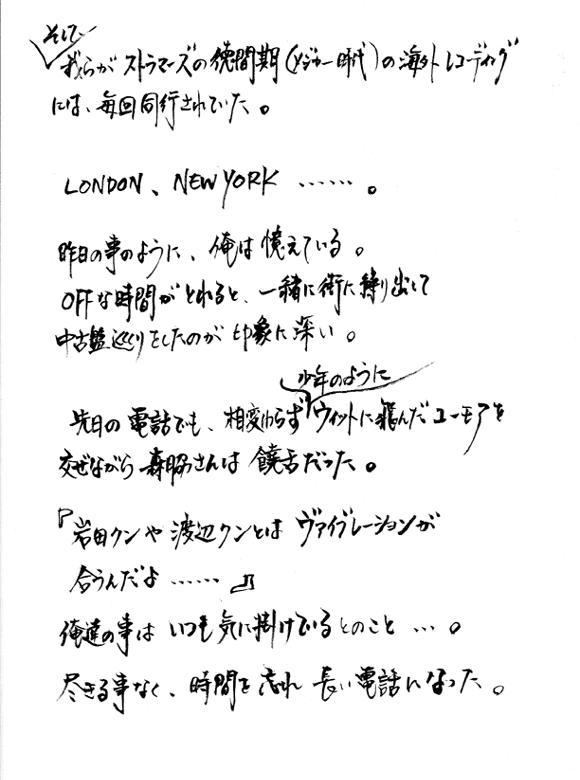 そして
我らがストラマーズの徳間期(メジャー時代)の海外レコーディング
には、毎回同行されていた。
LONDON、NEW YORK ……。
昨日の事のように、俺は憶えている。
OFFな時間がとれると、一緒に街に繰り出して
中古盤巡りをしたのが印象に深い。
少年のように
先日の電話でも、相変わらずウィットに飛んだユーモアを
交ぜながら森脇さんは饒舌だった。
『岩田クンや渡辺クンとはヴァイブレーションが
合うんだよ……』
俺達の事はいつも気に掛けているとのこと…。
尽きる事なく、時間を忘れ長い電話になった。